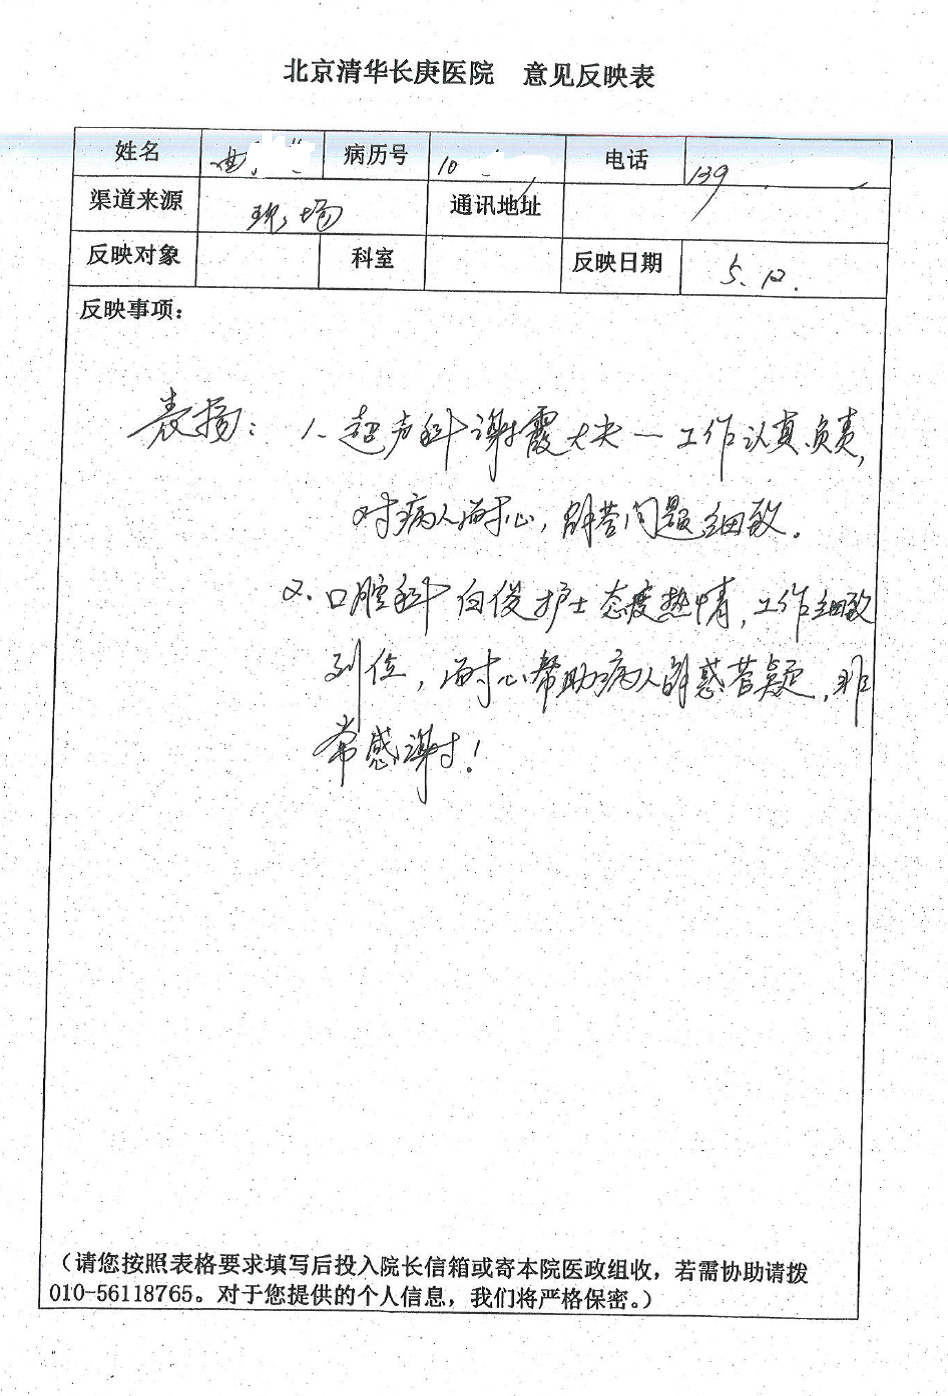 北京清华长庚医院 意见反映表
姓名 曲 病历号 10 电话 139
渠道来源 现场 通讯地址
反映对象 科室 反映日期 5.12.
反映事项：
表扬：1、超声科谢霞大夫一工作认真负责，
对病人耐心，解答问题细致。
2、口腔科白俊护士态度热情，工作细致
到位，耐心帮助病人解惑答疑，非
常感谢！
（请您按照表格要求填写后投入院长信箱或寄本院医政组收，若需协助请拨
010-56118765。对于您提供的个人信息，我们将严格保密。）